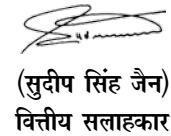 (सुदीप सिंह जैन)
वित्तीय सलाहकार